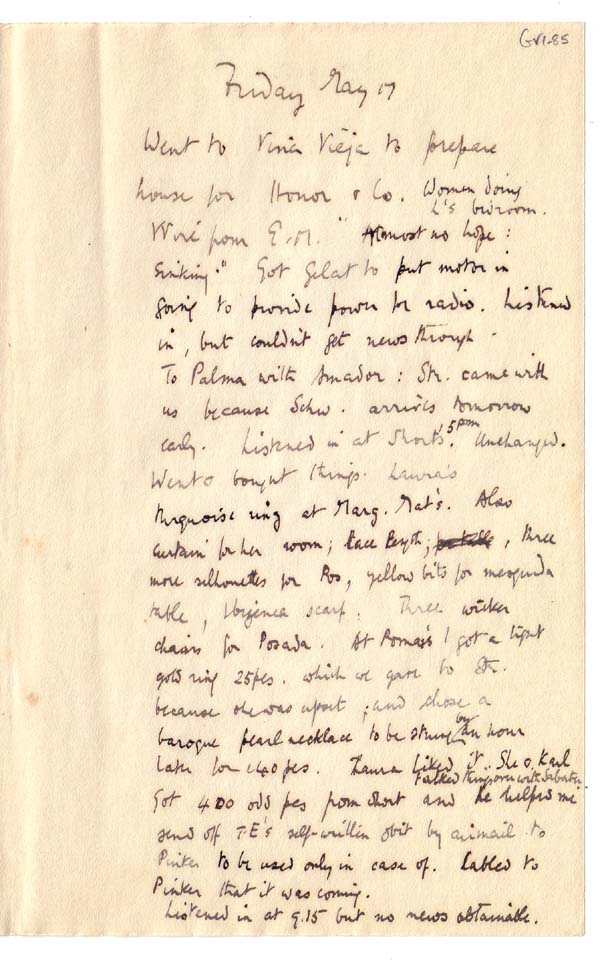 GVI-85
Friday May 17
Went to Vina Vieja to prepare
house for Honor & Co. Women doing
L's bedroom.
Wire from E.M. "Almost no hope:
sinking." Got Gelat to put motor in
going to provide power for radio. Listened
in, but couldn't get news through.
To Palma with Amador: Str. came with
us because Schw. arrives tomorrow
early. Listened in at Short's, 5 pm. Unchanged.
Went & bought things. Laura's
turquoise ring at Marg. Mat's. Also
curtain for her room; lace length; , three
more silhouettes for Ros, yellow bits for
table, Ibizenca scarf. Three wicker
chairs for Posada. At Pomar's I got a light
gold ring 25pes. which we gave to Str.
because she was upset; and chose a
baroque pearl necklace to be strung by an hour
later for 140 pes. Laura liked it. She & Karl
talked things over with Sabater
Got 400 odd pes from Short and he helped me
send off T.E's self-written obit by airmail to
Pinker to be used only in case of. Cabled to
Pinker that it was coming.
Listened in at 9.15 but no news obtainable.